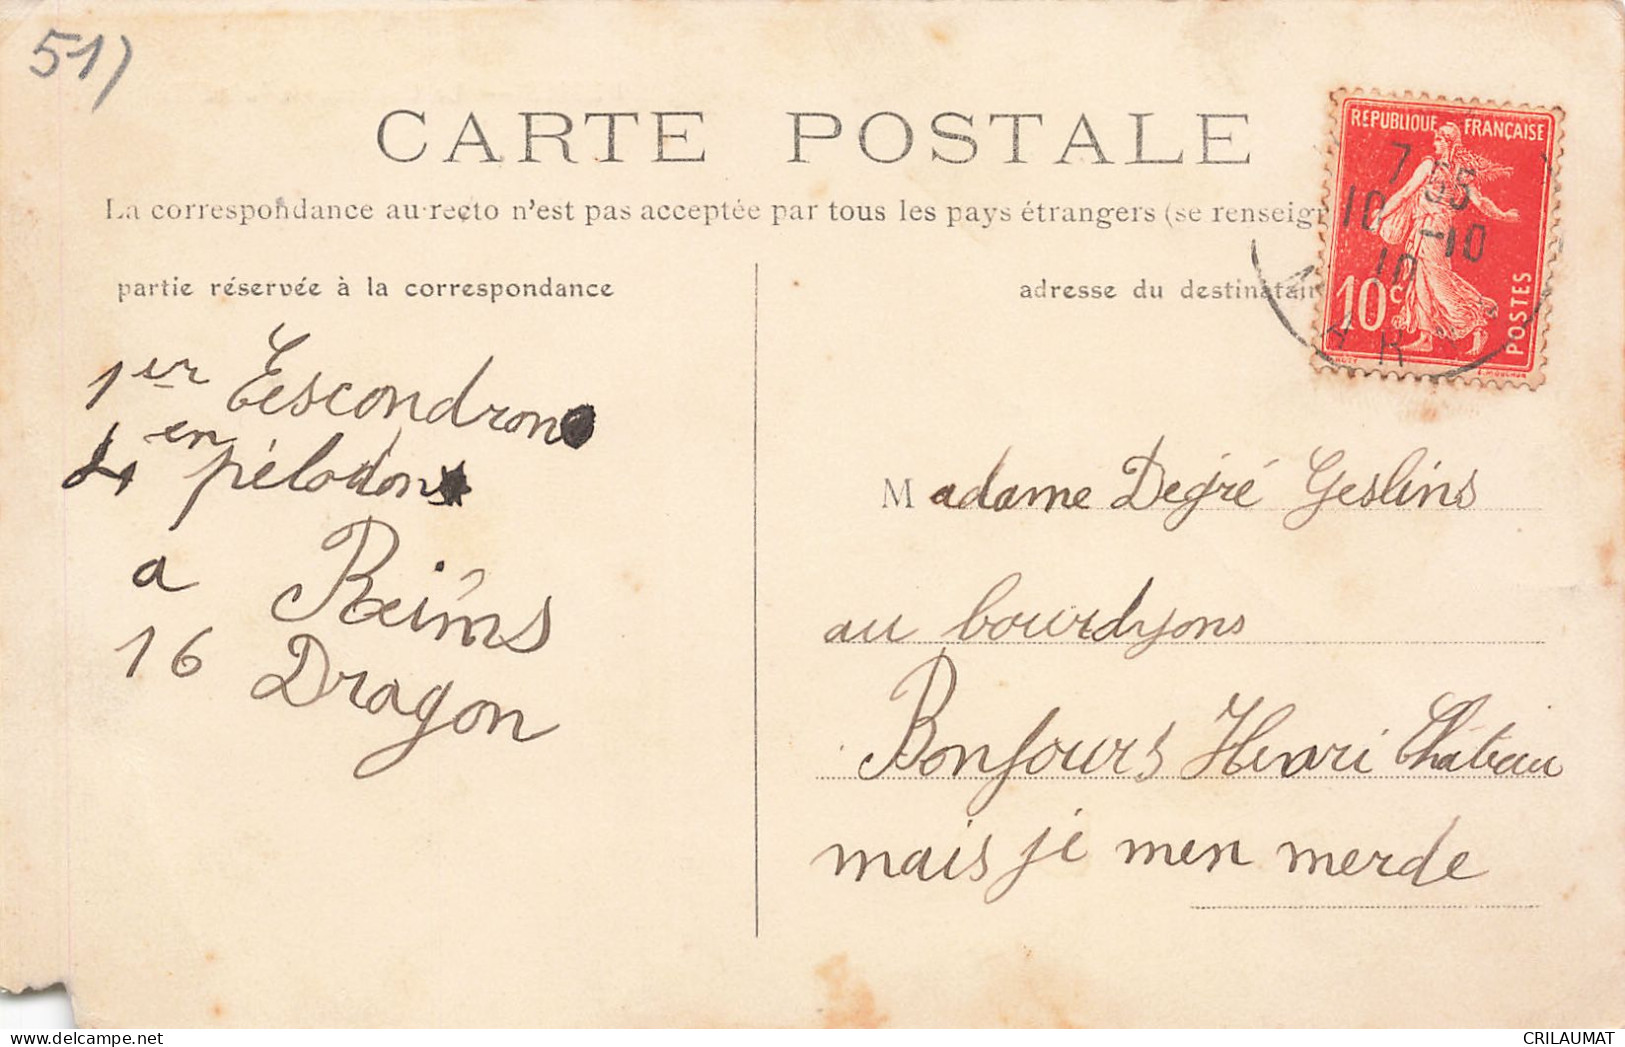 51)
CARTE POSTALE
La correspondance au recto n'est pas acceptée par tous les pays étrangers (se renseigr
REPUBLIQUE FRANÇAISE
10c
POSTES
7 55
10 -10
10
partie réservée à la correspondance
adresse du destinatair
1er Eescondron
4 en pélodon
a Reims
16 Dragon
Madame Degré Geslins
au bourdyons
Bonjours Henri Château
mais je men merde
CRILAUMAT